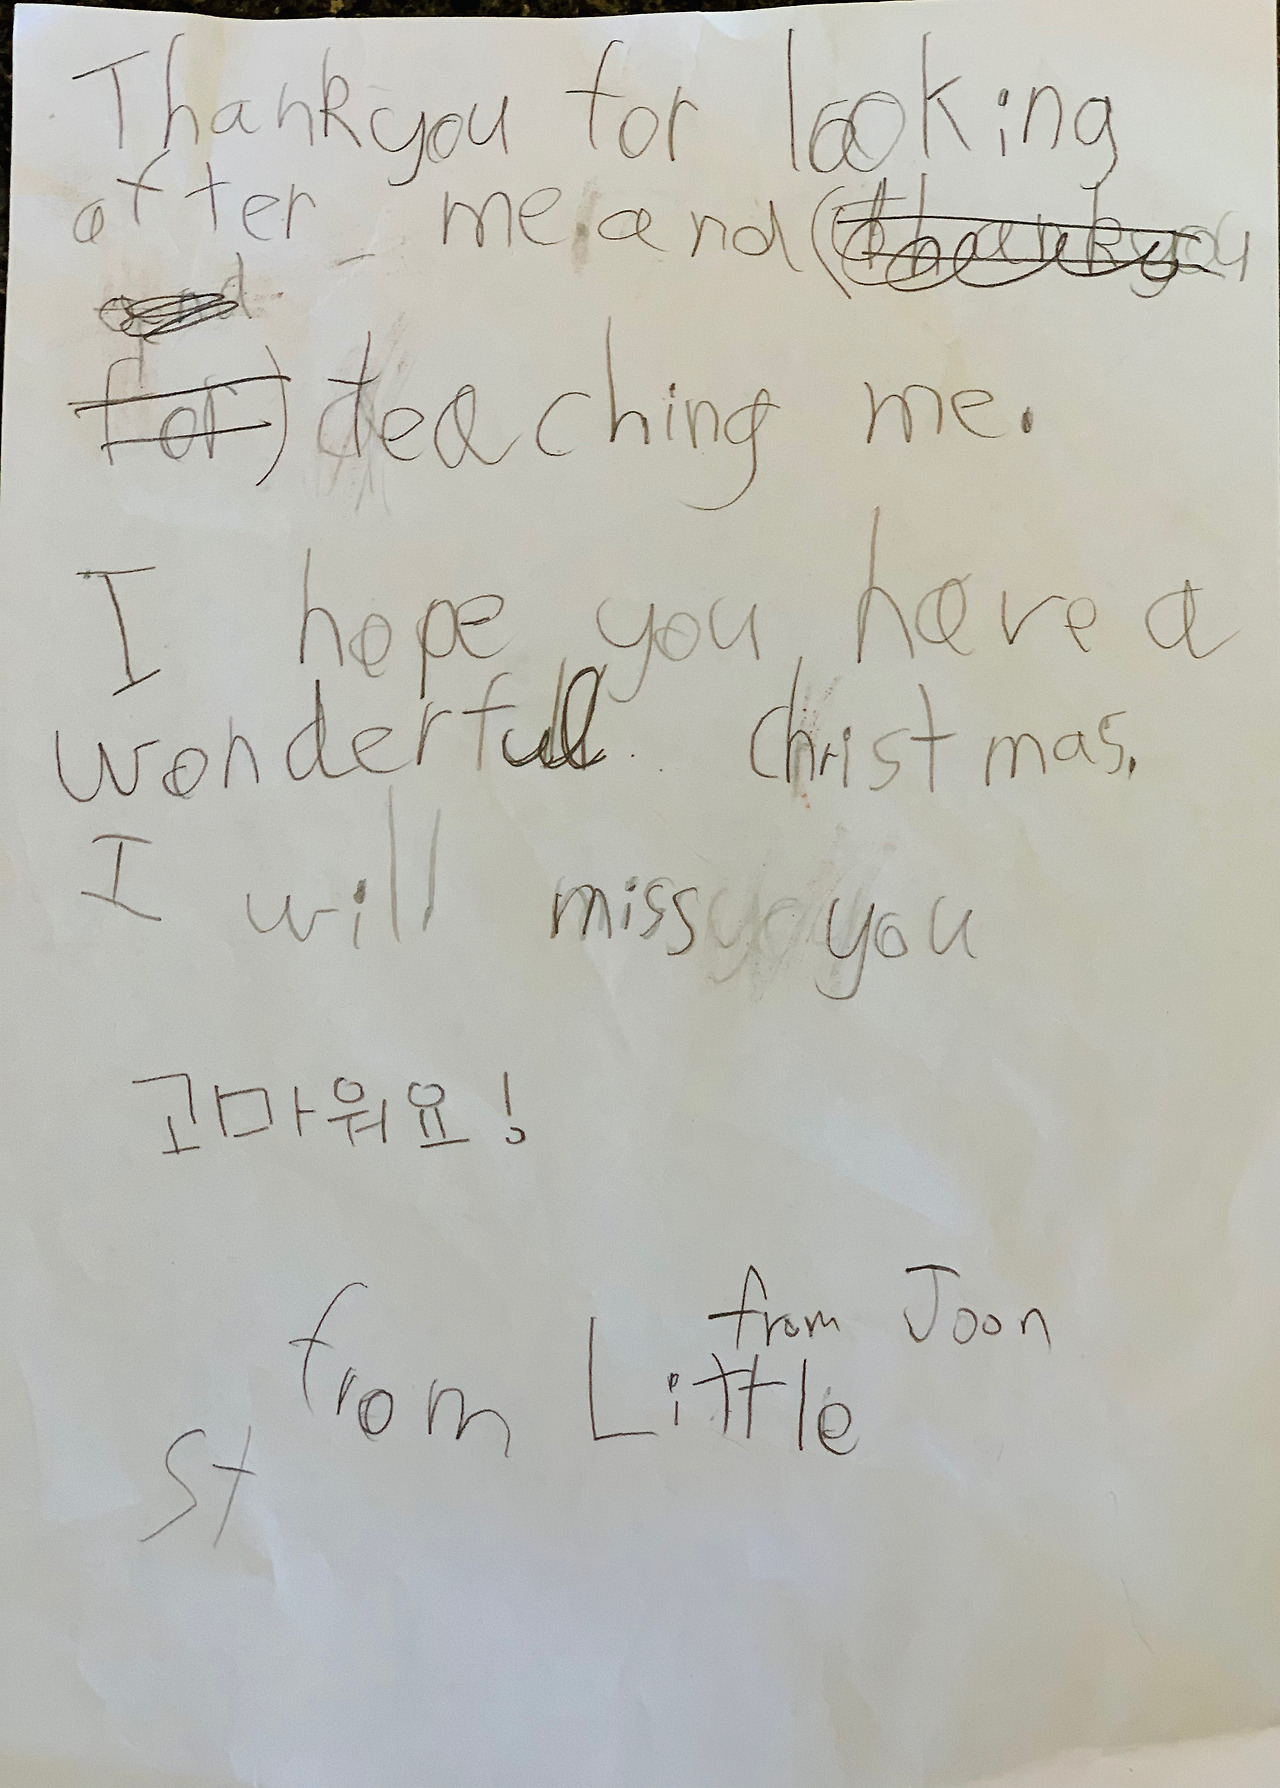 Thankyou for looking
after me and (thankyou
and
for) teaching me.
I hope you have a
wonderful christmas.
I will miss you
고마워요!
from Joon
from Little
St